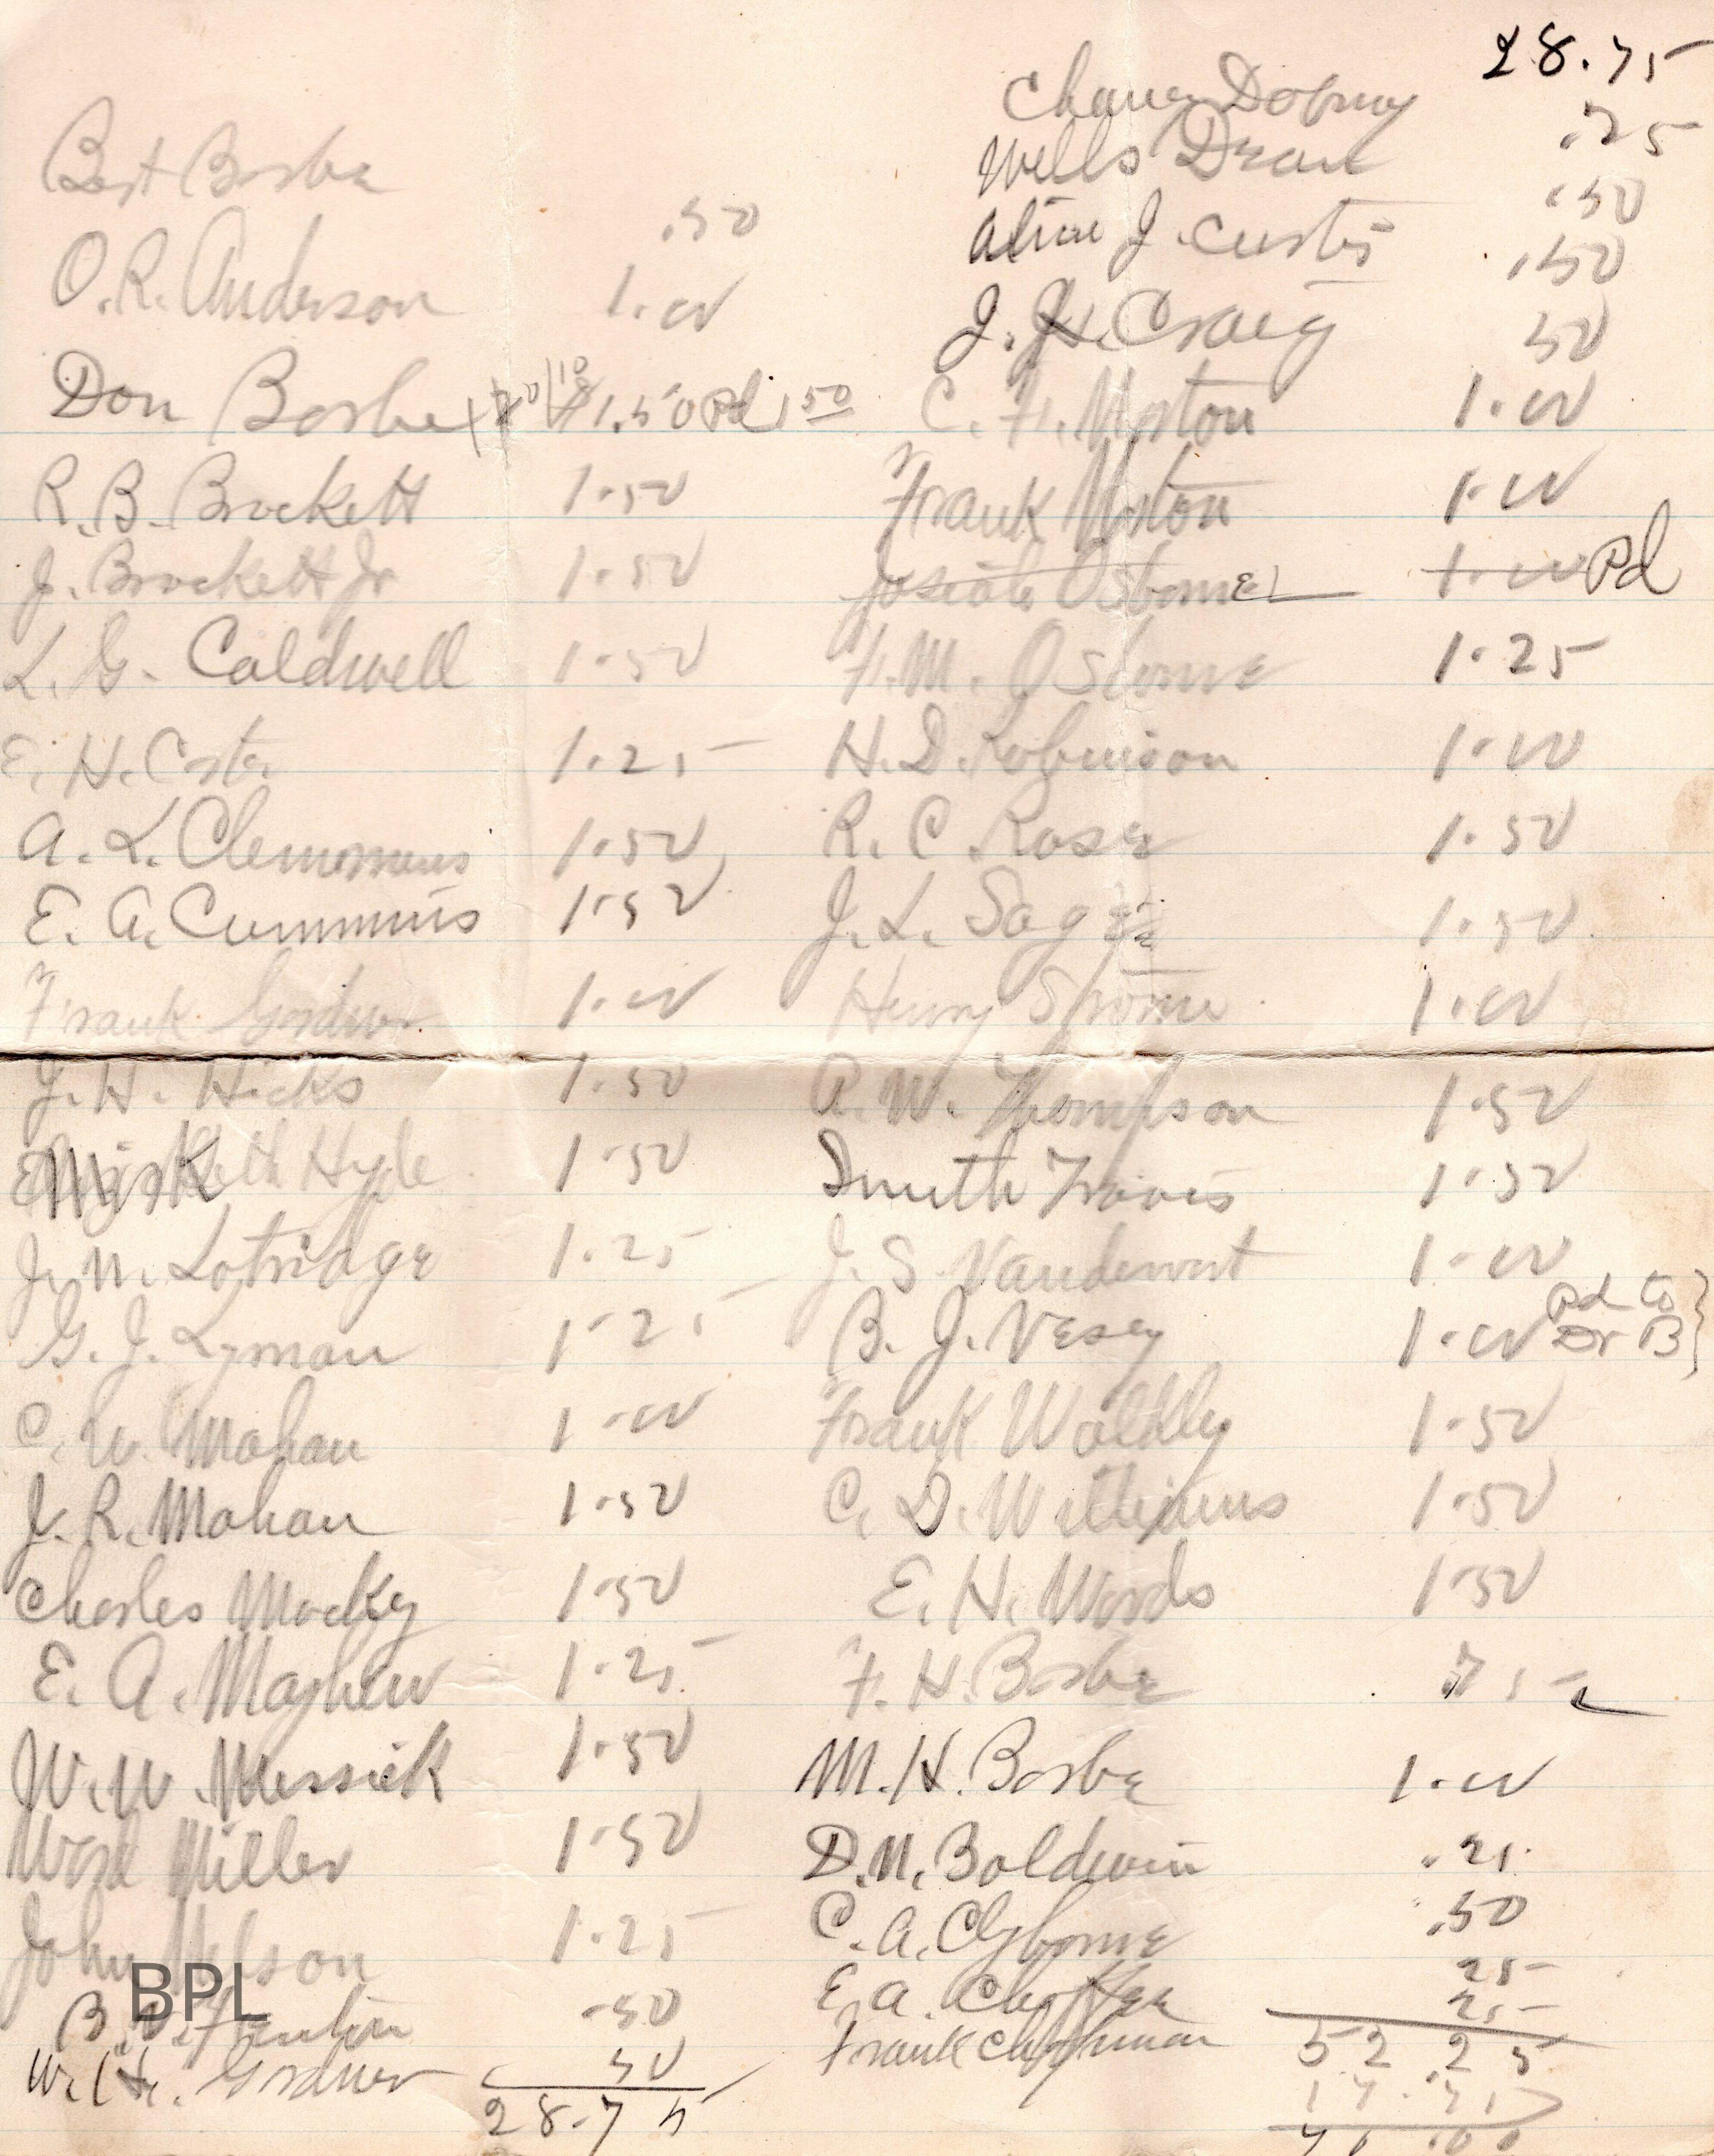 Bert Bosbe .50
O. R. Anderson 1.00
Don Bosbe 1.50 Pd 1 50
R. B. Brockett 1.50
J. Brockett Jr 1.50
L. G. Caldwell 1.50
E. H. Coster 1.25
A. L. Clemmens 1.50
E. A. Cummins 1.50
Frank Gordner 1.00
J. H. Hicks 1.50
Hyde 1.50
J. N. Lotridge 1.25
G. J. Lyman 1.25
C. W. Mahan 1.00
J. R. Mahan 1.50
Charles Mackey 1.50
E. A. Mayhew 1.25
W. W. Messick 1.50
Ward Miller 1.50
John Nelson 1.25
B. .50
W. H. Gordner 50
28.75
28.75
.25
Wells Dean .50
J. Curtis .50
J. H. Craig 50
C. H. Norton 1.00
Frank Norton 1.00
Josiah Osborne 1.00 Pd
F. M. Osborne 1.25
H. D. Robinson 1.00
R. C. Rose 1.50
J. L. Sage 1.50
Henry Strome 1.00
A. W. Thompson 1.50
Smith Travis 1.50
J. S. Vandervort 1.00
B. J. Vesey 1.00 Pd to Dr B
Frank Walkley 1.50
C. D. Williams 1.50
E. H. Woods 1.50
F. H. Bosbe .75
M. H. Bosbe 1.00
D. N. Baldwin .25
C. A. Clyborne .50
E. A. Chaffee 25
Frank Chapman 25
52.25
BPL